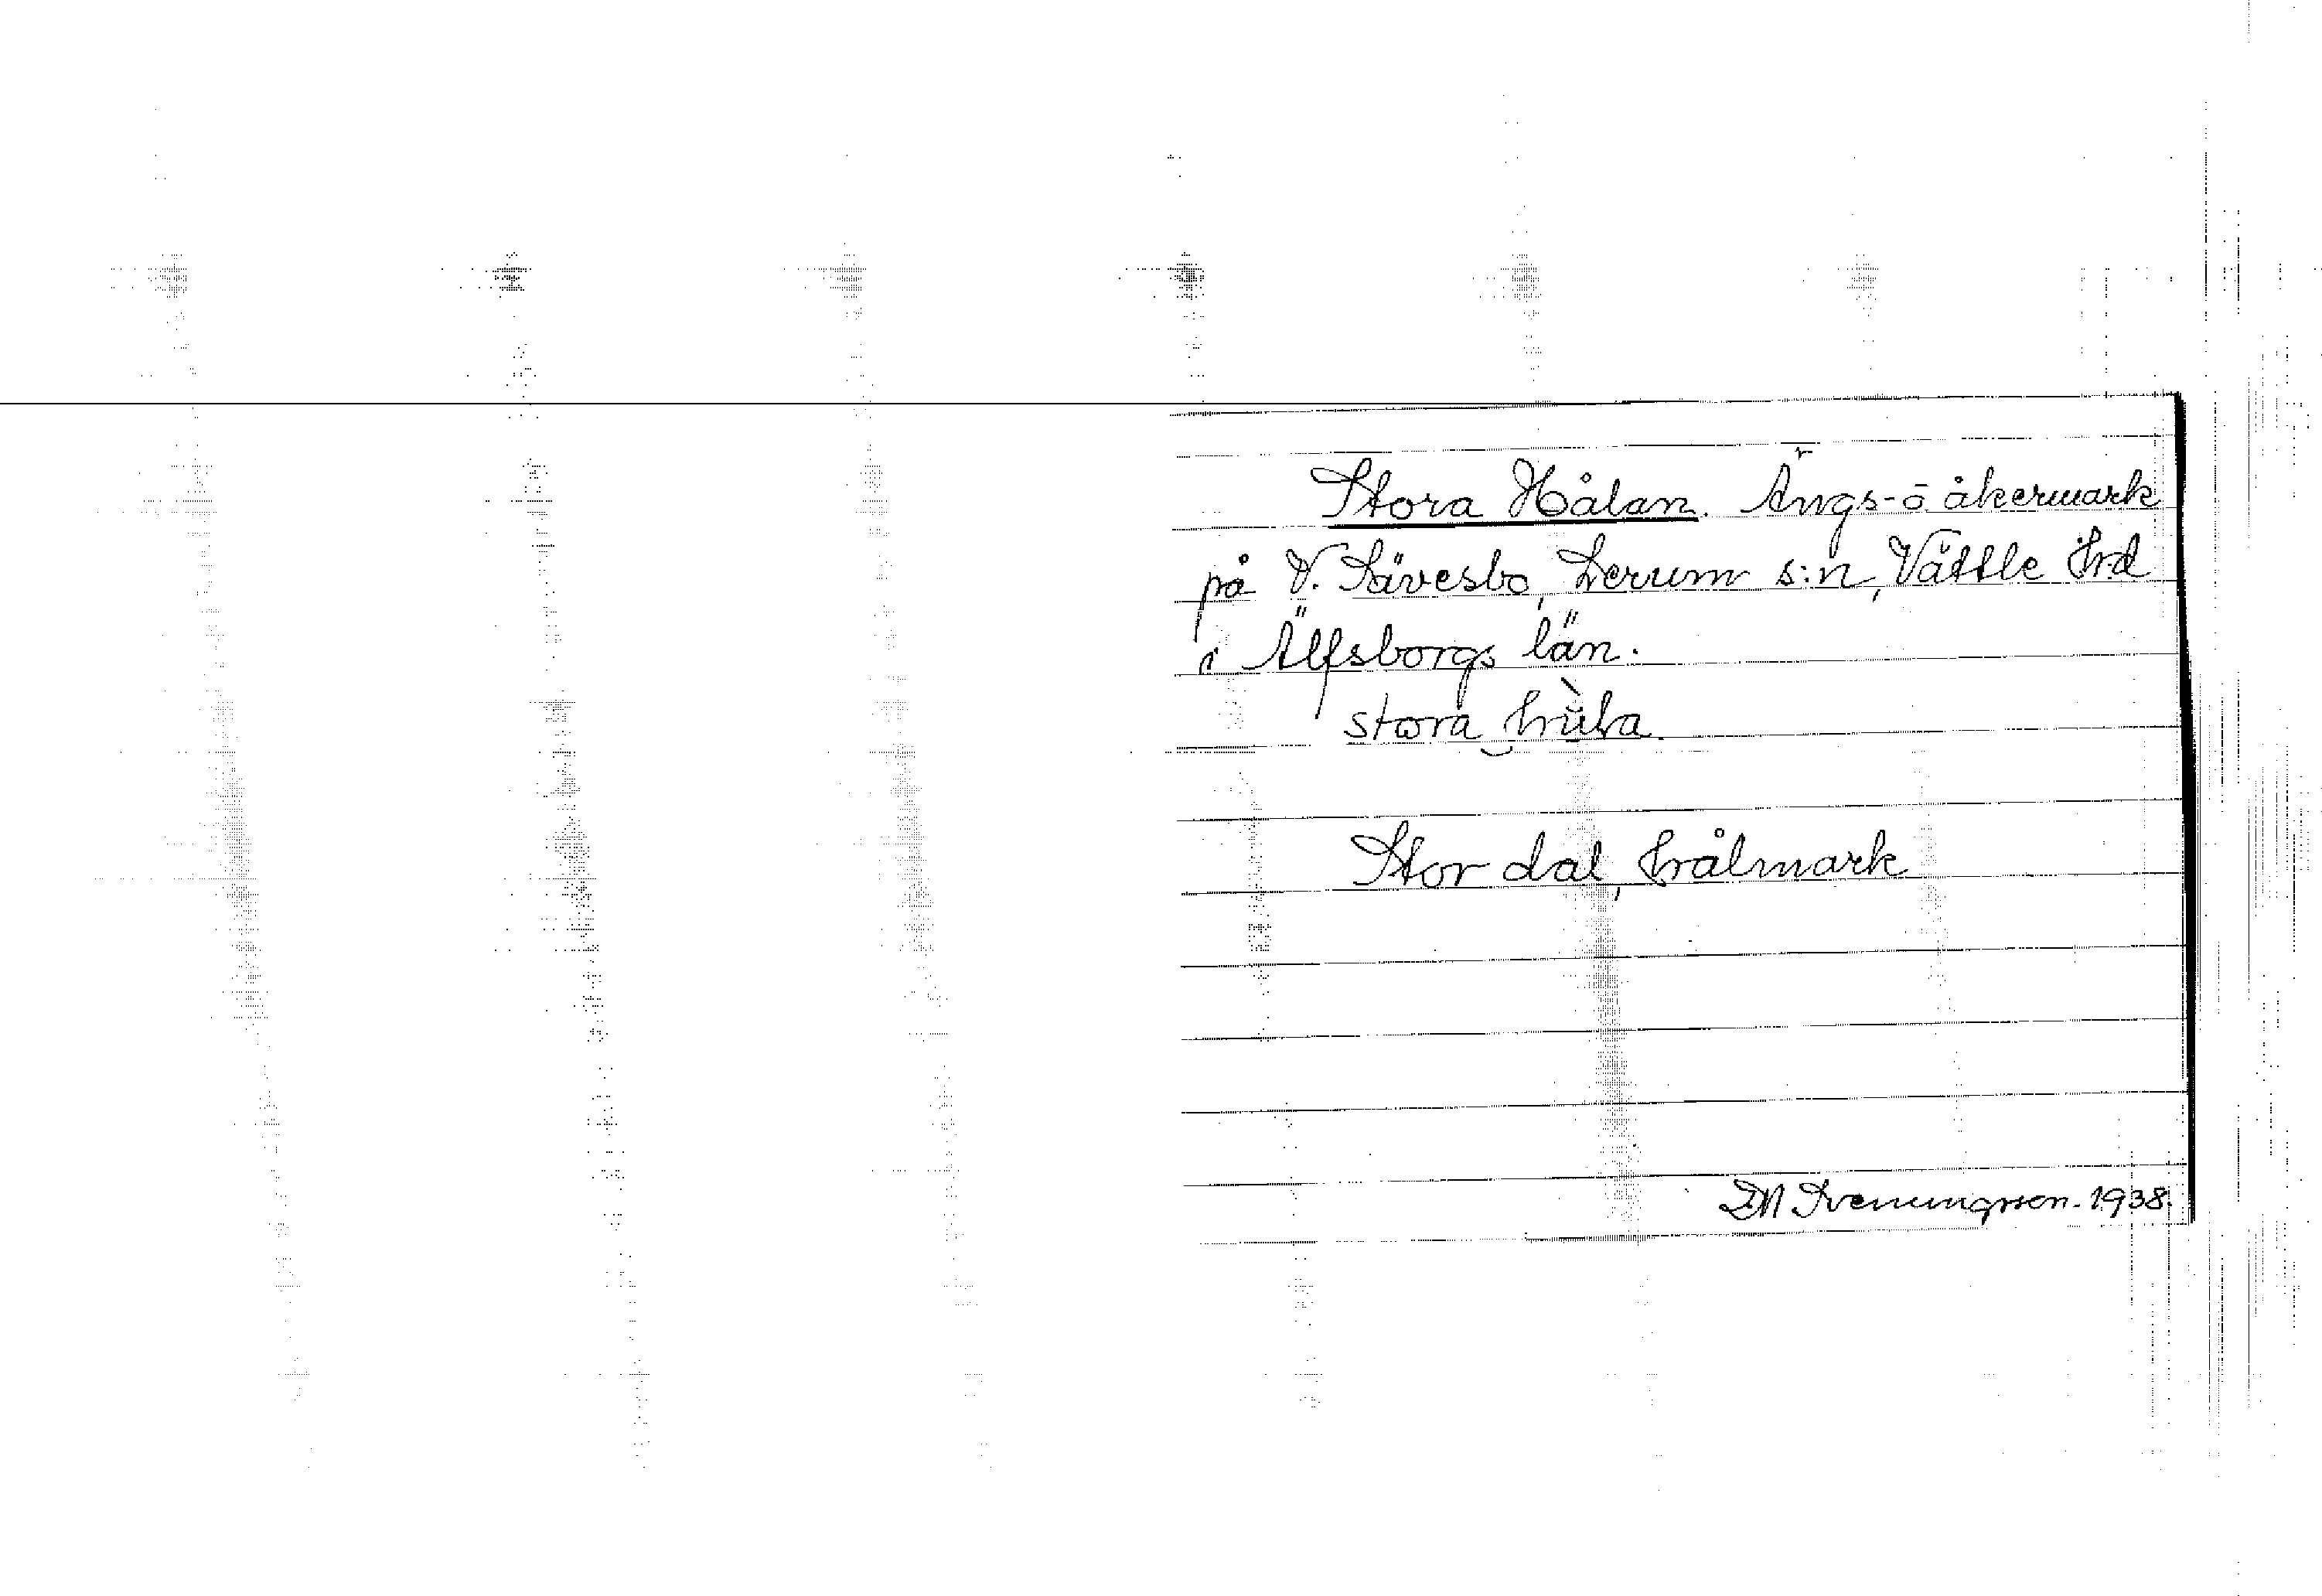 Stora Hålan. Ängs- o åkermark
på V. Sävesbo, Lerum s:n, Vättle hrd
i Älfsborgs län.
stora
Stor dal, hålmark
DN Svenningsson. 1938.